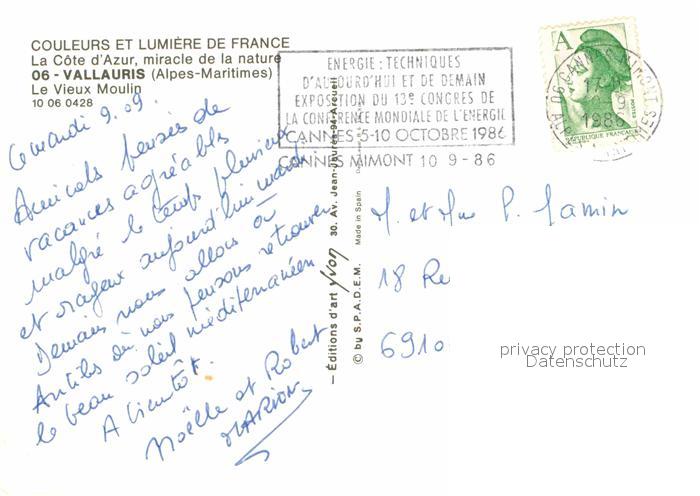 COULEURS ET LUMIÈRE DE FRANCE
La Côte d'Azur, miracle de la nature
06 - VALLAURIS (Alpes-Maritimes)
Le Vieux Moulin
10 06 0428
Ce mardi 9.09.
Amicales pensées de
vacances agréables
malgré le temps pluvieux
et orageux aujourd'hui mardi
Demain nous allons à
Antibes où nous pensons retrouver
le beau soleil méditerranéen
A bientôt.
Noëlle et Robert
MARION
ENERGIE : TECHNIQUES
D'AUJOURD'HUI ET DE DEMAIN
EXPOSITION DU 13e CONGRES DE
LA CONFERENCE MONDIALE DE L'ENERGIE
CANNES 5-10 OCTOBRE 1986
CANNES MIMONT 10 9 - 86
A
POSTES
REPUBLIQUE FRANÇAISE
CANNES MIMONT
17
9
1986
— Éditions d'art Yvon 30. Av. Jean-Jaurès-94-Arcueil
© by S.P.A.D.E.M. Made in Spain
M. et Mme P. Jamin
18 Re
6910
privacy protection
Datenschutz